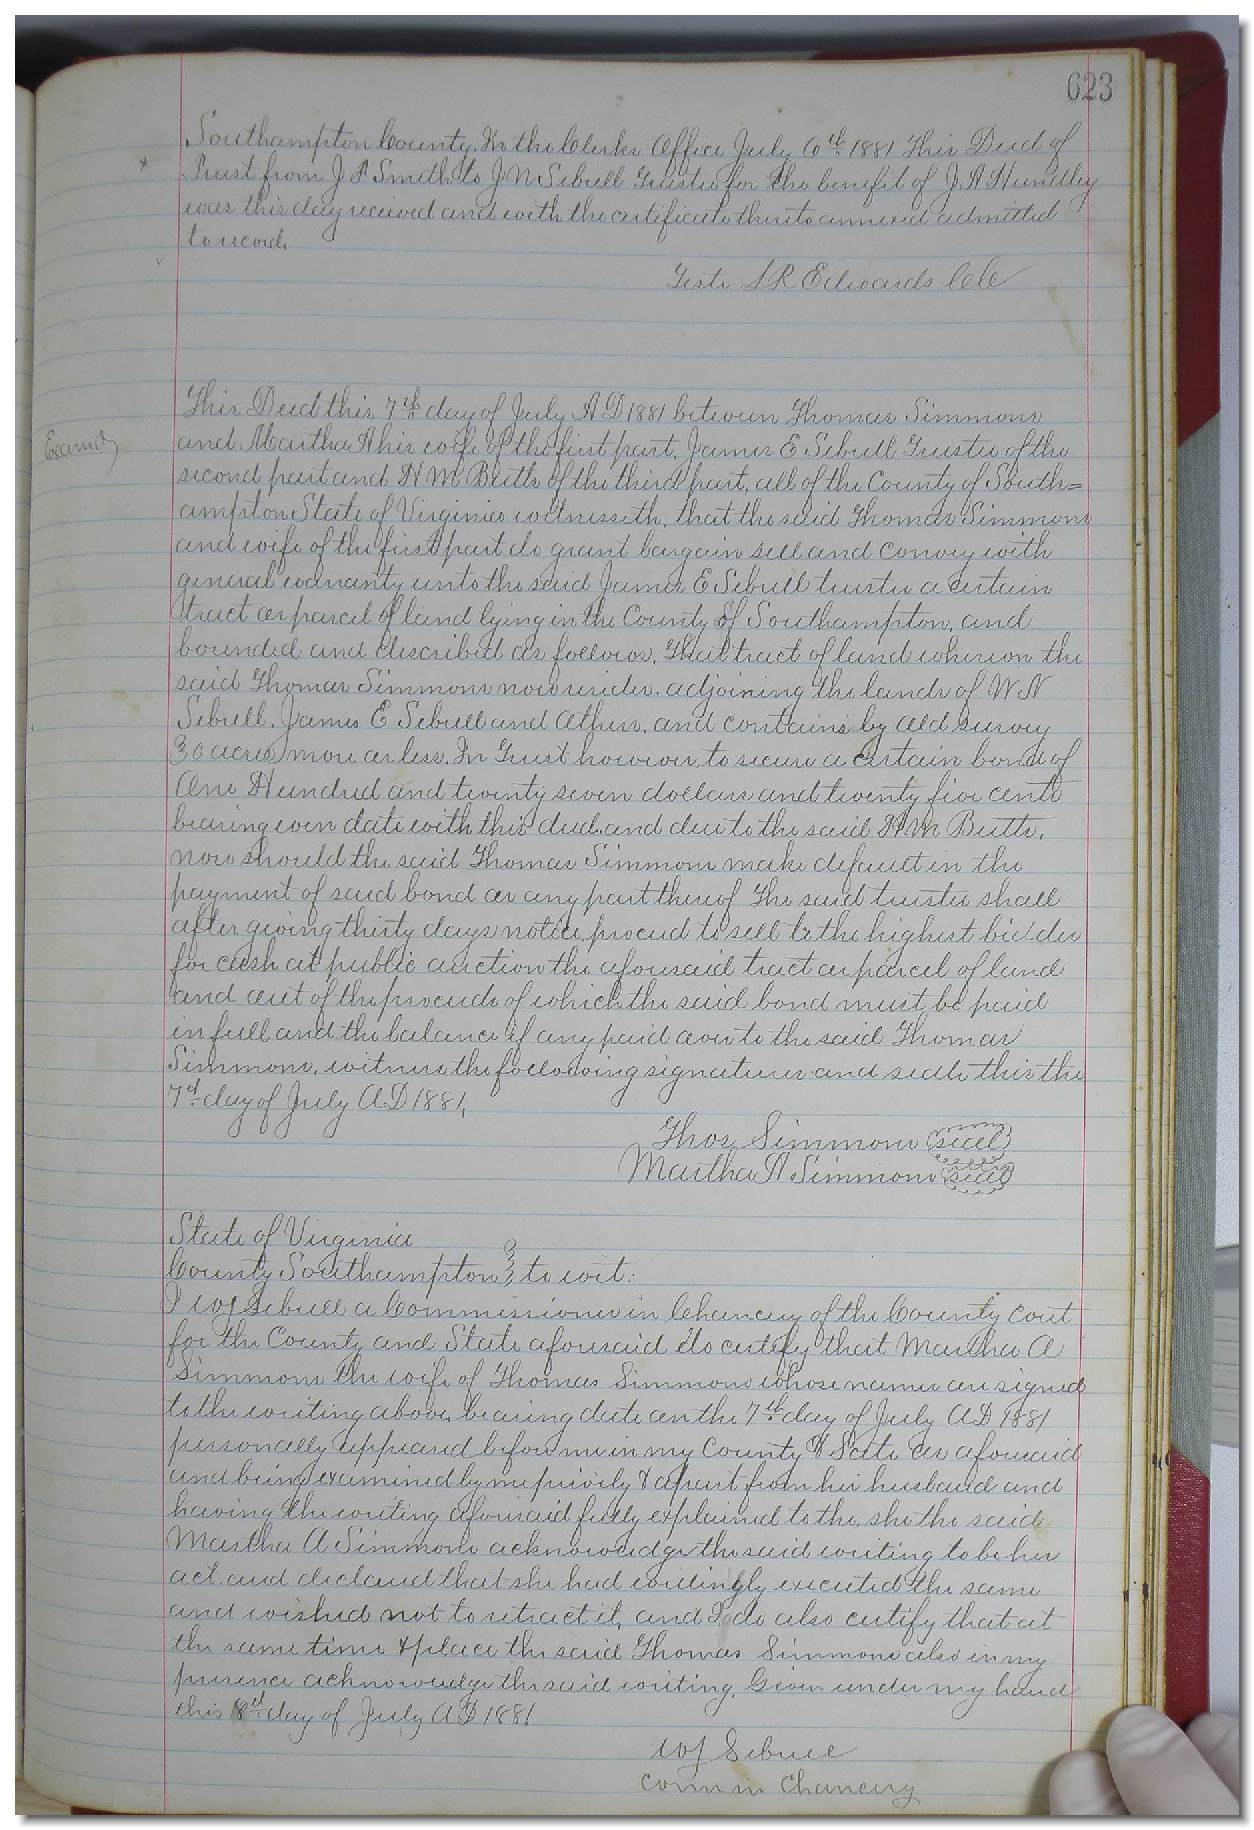 623
Southampton County. In the Clerks Office July 6th 1881 This Deed of
Trust from J P Smith to J N Sebrell Trustee for the benefit of J A Hundley
was this day received and with the certificate thereto annexed admitted
to record.
Teste S R Edwards Clk
This Deed this 7th day of July A D 1881 between Thomas Simmons
Examd
and Martha A his wife of the first part, James E Sebrell Trustee of the
second part and H M Butts of the third part, all of the County of South=
ampton State of Virginia witnesseth, that the said Thomas Simmons
and wife of the first part do grant bargain sell and convey with
general warranty unto the said James E Sebrell trustee a certain
tract or parcel of land lying in the County of Southampton, and
bounded and described as follows, That tract of land whereon the
said Thomas Simmons now resides. adjoining the lands of W N
Sebrell. James E Sebrell and others, and contains by old survey
30 acres more or less. In Trust however to secure a certain bond of
One Hundred and twenty seven dollars and twenty five cents
bearing even date with this deed, and due to the said H M Butts.
now should the said Thomas Simmons make default in the
payment of said bond or any part thereof The said trustee shall
after giving thirty days notice, proceed to sell to the highest bidder
for cash at public auction the aforesaid tract or parcel of land
and out of the proceeds of which the said bond must be paid
in full and the balance if any paid over to the said Thomas
Simmons. witness the following signatures and seals this the
7th day of July A D 1881,
Thos Simmons seal
Martha A Simmons seal
State of Virginia
County Southampton to wit:
I W J Sebrell a Commissioner in Chancery of the County Cort
for the County and State aforesaid do certify that Martha A
Simmons the wife of Thomas Simmons whose names are signed
to the writing above, bearing date on the 7th day of July A D 1881
personally appeared before me in my County & State as aforesaid
and being examined by me privily & apart from her husband and
having the writing aforesaid fully explained to the, she the said
Martha A Simmons acknowledge the said writing to be her
act and declared that she had willingly executed the same
and wished not to retract it, and I do also certify that at
the same time & place the said Thomas Simmons also in my
presence acknowledge the said writing, Given under my hand
this 8th day of July A D 1881
W J Sebrell
Com in Chancery